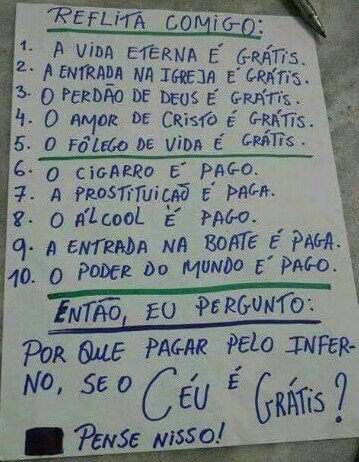 REFLITA COMIGO:
1. A VIDA ETERNA É GRÁTIS.
2. A ENTRADA NA IGREJA É GRÁTIS.
3. O PERDÃO DE DEUS É GRÁTIS.
4. O AMOR DE CRISTO É GRÁTIS.
5. O FÔLEGO DE VIDA É GRÁTIS.
6. O CIGARRO É PAGO.
7. A PROSTITUICÃO É PAGA.
8. O ÁLCOOL É PAGO.
9. A ENTRADA NA BOATE É PAGA.
10. O PODER DO MUNDO É PAGO.
ENTÃO, EU PERGUNTO:
POR QUE PAGAR PELO INFER-
NO, SE O CÉU É GRÁTIS?
PENSE NISSO!